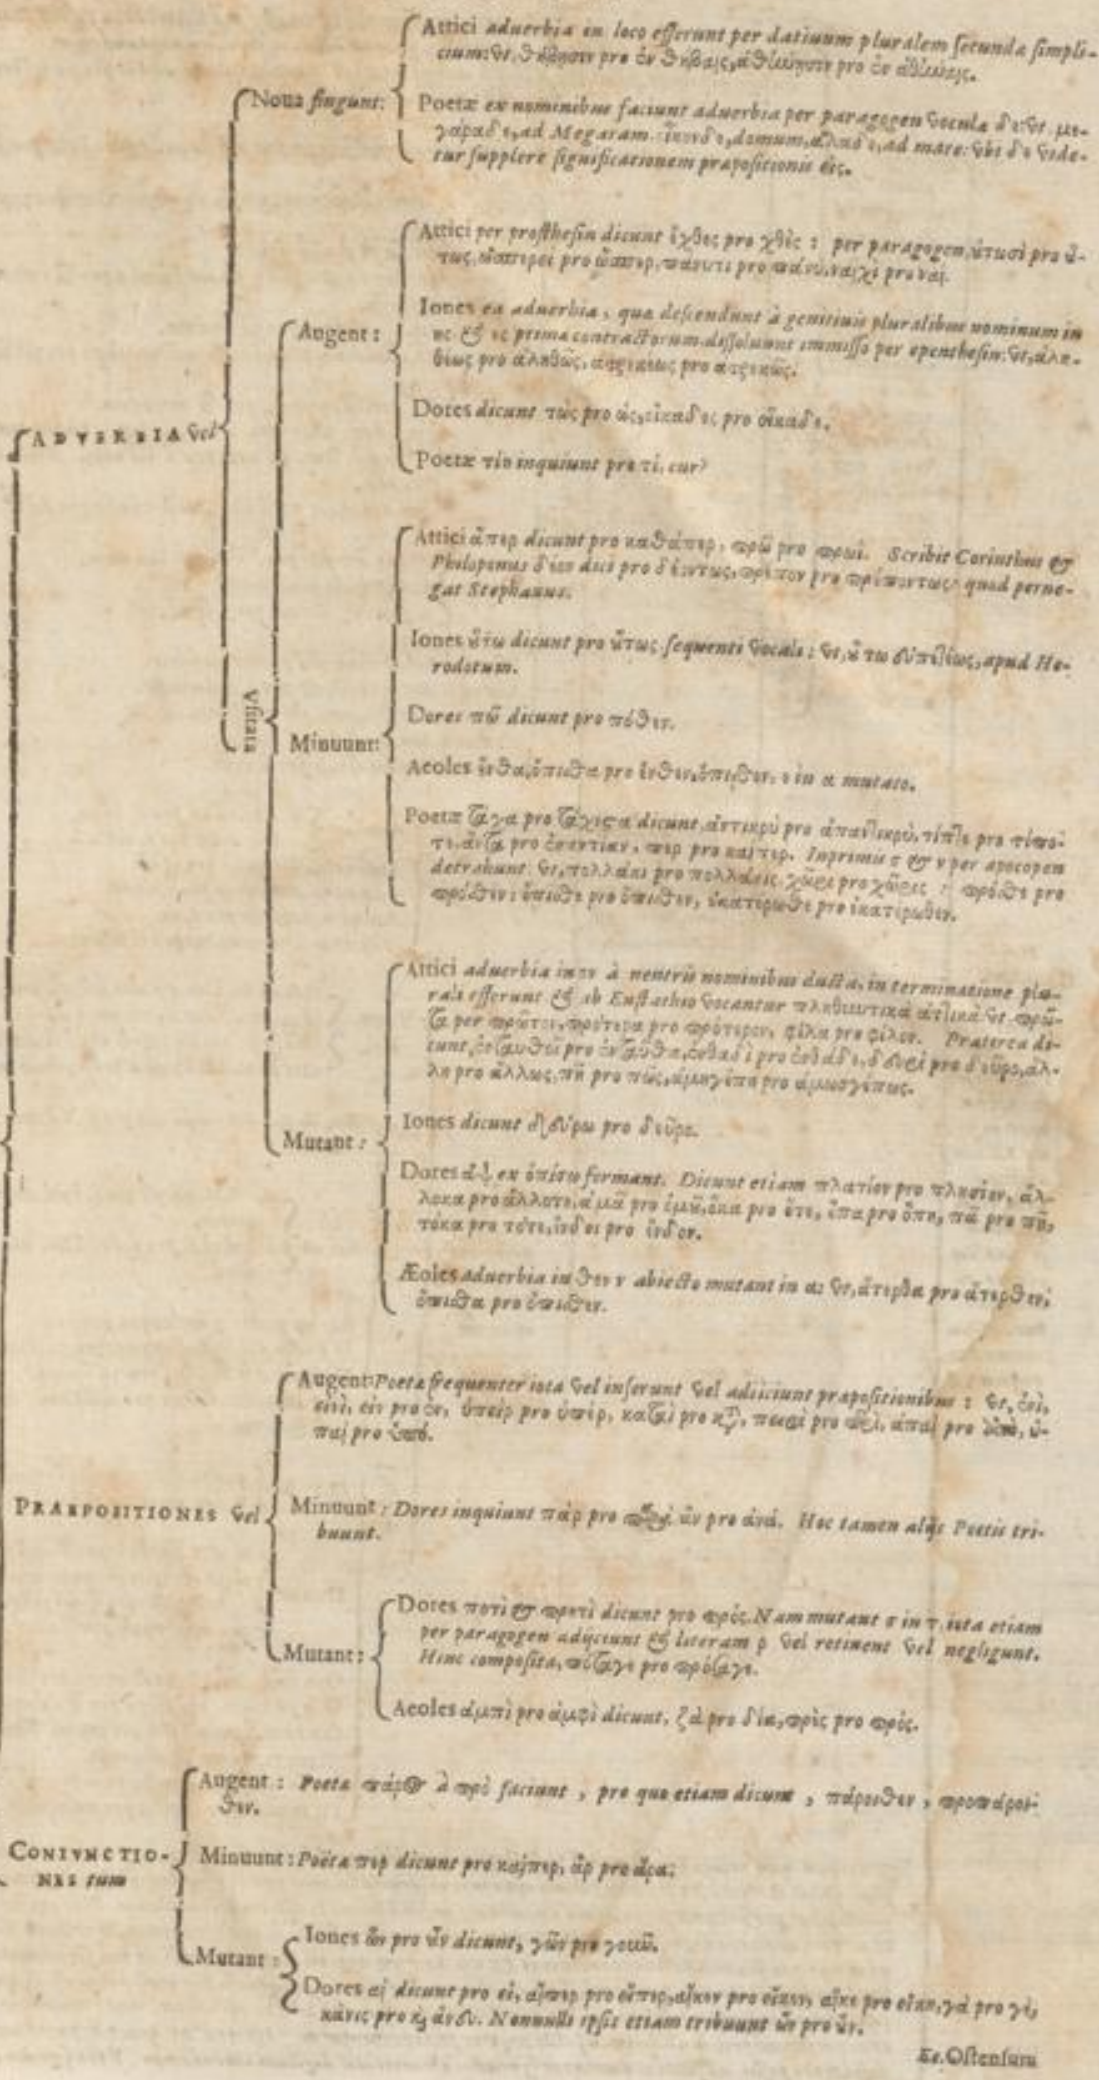 Attici aduerbia in loco efferunt per datiuum pluralem secunda simpli-
cium: vt, θήβησιν pro ἐν θήβαις, ἀθήνησιν pro ἐν ἀθήναις.
Noua fingunt:
Poetæ ex nominibus faciunt aduerbia per paragogen vocula δε: vt με-
γάραδε, ad Megaram. οἶκονδε, domum, ἅλαδε, ad mare: vbi δε vide-
tur supplere significationem præpositionis εἰς.
ADVERBIA vel
Vsitata
Augent:
Attici per prosthesin dicunt ἐχθὲς pro χθὲς: per paragogen, ὑτωσὶ pro ὕ-
τως, ὡσπερεὶ pro ὥσπερ, πάνυτι pro πάνυ, ναίχι pro ναί.
Iones ea aduerbia, quæ descendunt à genitiuis pluralibus nominum in
ης & ες prima contractorum dissoluunt immisso per epenthesin: vt, ἀλη-
θέως pro ἀληθῶς, ἀτρεκέως pro ἀτρεκῶς.
Dores dicunt τὼς pro ὡς, οἴκαδες pro οἴκαδε.
Poetæ τίη inquiunt pro τί, cur?
Minuunt:
Attici ἅπερ dicunt pro καθάπερ, πρῴ pro πρωί. Scribit Corinthus &
Philoponus δέον dici pro δεόντως, πρέπον pro πρεπόντως: quod perne-
gat Stephanus.
Iones ὕτω dicunt pro ὕτως sequenti vocali: vt, ὕτω εὐπετέως, apud He-
rodotum.
Dores πῶ dicunt pro πόθεν.
Aeoles ἔνθα, ὄπισθα pro ἔνθεν, ὄπισθεν, ε in α mutato.
Poetæ τάχα pro τάχιστα dicunt, ἀντικρὺ pro ἀπαντικρὺ, τίπτε pro τίποτ-
τε, ἄντα pro ἐναντίαν, περ pro καίπερ. Inprimis ς & ν per apocopen
detrahunt: vt, πολλάκι pro πολλάκις χῶρι pro χῶρις: πρόσθε pro
πρόσθεν: ὄπισθε pro ὄπισθεν, ἑκατέρωθε pro ἑκατέρωθεν.
Mutant:
Attici aduerbia in ον à neutris nominibus ducta, in terminatione plu-
rali efferunt & ab Eustathio vocantur πληθυντικὰ ἀττικά: vt πρῶ-
τα per πρῶτον, πρότερα pro πρότερον, φίλα pro φίλον. Præterea di-
cunt, ἐνταυθοῖ pro ἐνταῦθα, ἐνθαδὶ pro ἐνθάδε, δευρὶ pro δεῦρο, ἄλ-
λῃ pro ἄλλως, πῆ pro πῶς, ἁμηγέπη pro ἁμωσγέπως.
Iones dicunt δεύρω pro δεῦρο.
Dores ἂψ ex ὀπίσω formant. Dicunt etiam πλατίον pro πλησίον, ἄλ-
λοκα pro ἄλλοτε, ἁμᾶ pro ὁμῦ, ὅκα pro ὅτε, ὅπα pro ὅπη, πᾶ pro πῆ,
τόκα pro τότε, ἔνδοι pro ἔνδον.
Æoles aduerbia in θεν ν abiecto mutant in α: vt, ἄτερθα pro ἄτερθεν,
ὄπισθα pro ὄπισθεν.
PRAEPOSITIONES vel
Augent: Poetæ frequenter iota vel inserunt vel adiiciunt præpositionibus: vt, ἐνὶ,
εἰνὶ, εἰν pro ἐν, ὑπεὶρ pro ὑπὲρ, καταὶ pro κατὰ, περὶ, ἀπαὶ pro ἀπὸ, ὑ-
παὶ pro ὑπό.
Minuunt: Dores inquiunt πὰρ pro παρὰ, ἂν pro ἀνά. Hoc tamen alij Poetis tri-
buunt.
Mutant:
Dores ποτὶ & προτὶ dicunt pro πρός. Nam mutant σ in τ, iota etiam
per paragogen adijciunt & literam ρ vel retinent vel negligunt.
Hinc composita, πόταγε pro πρόσαγε.
Aeoles ἀμπὶ pro ἀμφὶ dicunt, ζὰ pro δία, πρὲς pro πρός.
CONIVNCTIO-
NES tum
Augent: Poeta πάρος à πρὸ faciunt, pro quo etiam dicunt, πάροιθεν, προπάροι-
θεν.
Minuunt: Poëtæ περ dicunt pro καίπερ, ἂρ pro ἄρα.
Mutant:
Iones ὦν pro ὖν dicunt, γῶν pro γοῦν.
Dores αἰ dicunt pro εἰ, αἴπερ pro εἴπερ, αἴκεν pro εἴκεν, αἴκε pro εἴκε, γὰ pro γὲ,
κἄνις pro κὶ ἄνευ. Nonnulli ipsis etiam tribuunt ὦν pro ὖν.
Ostensum